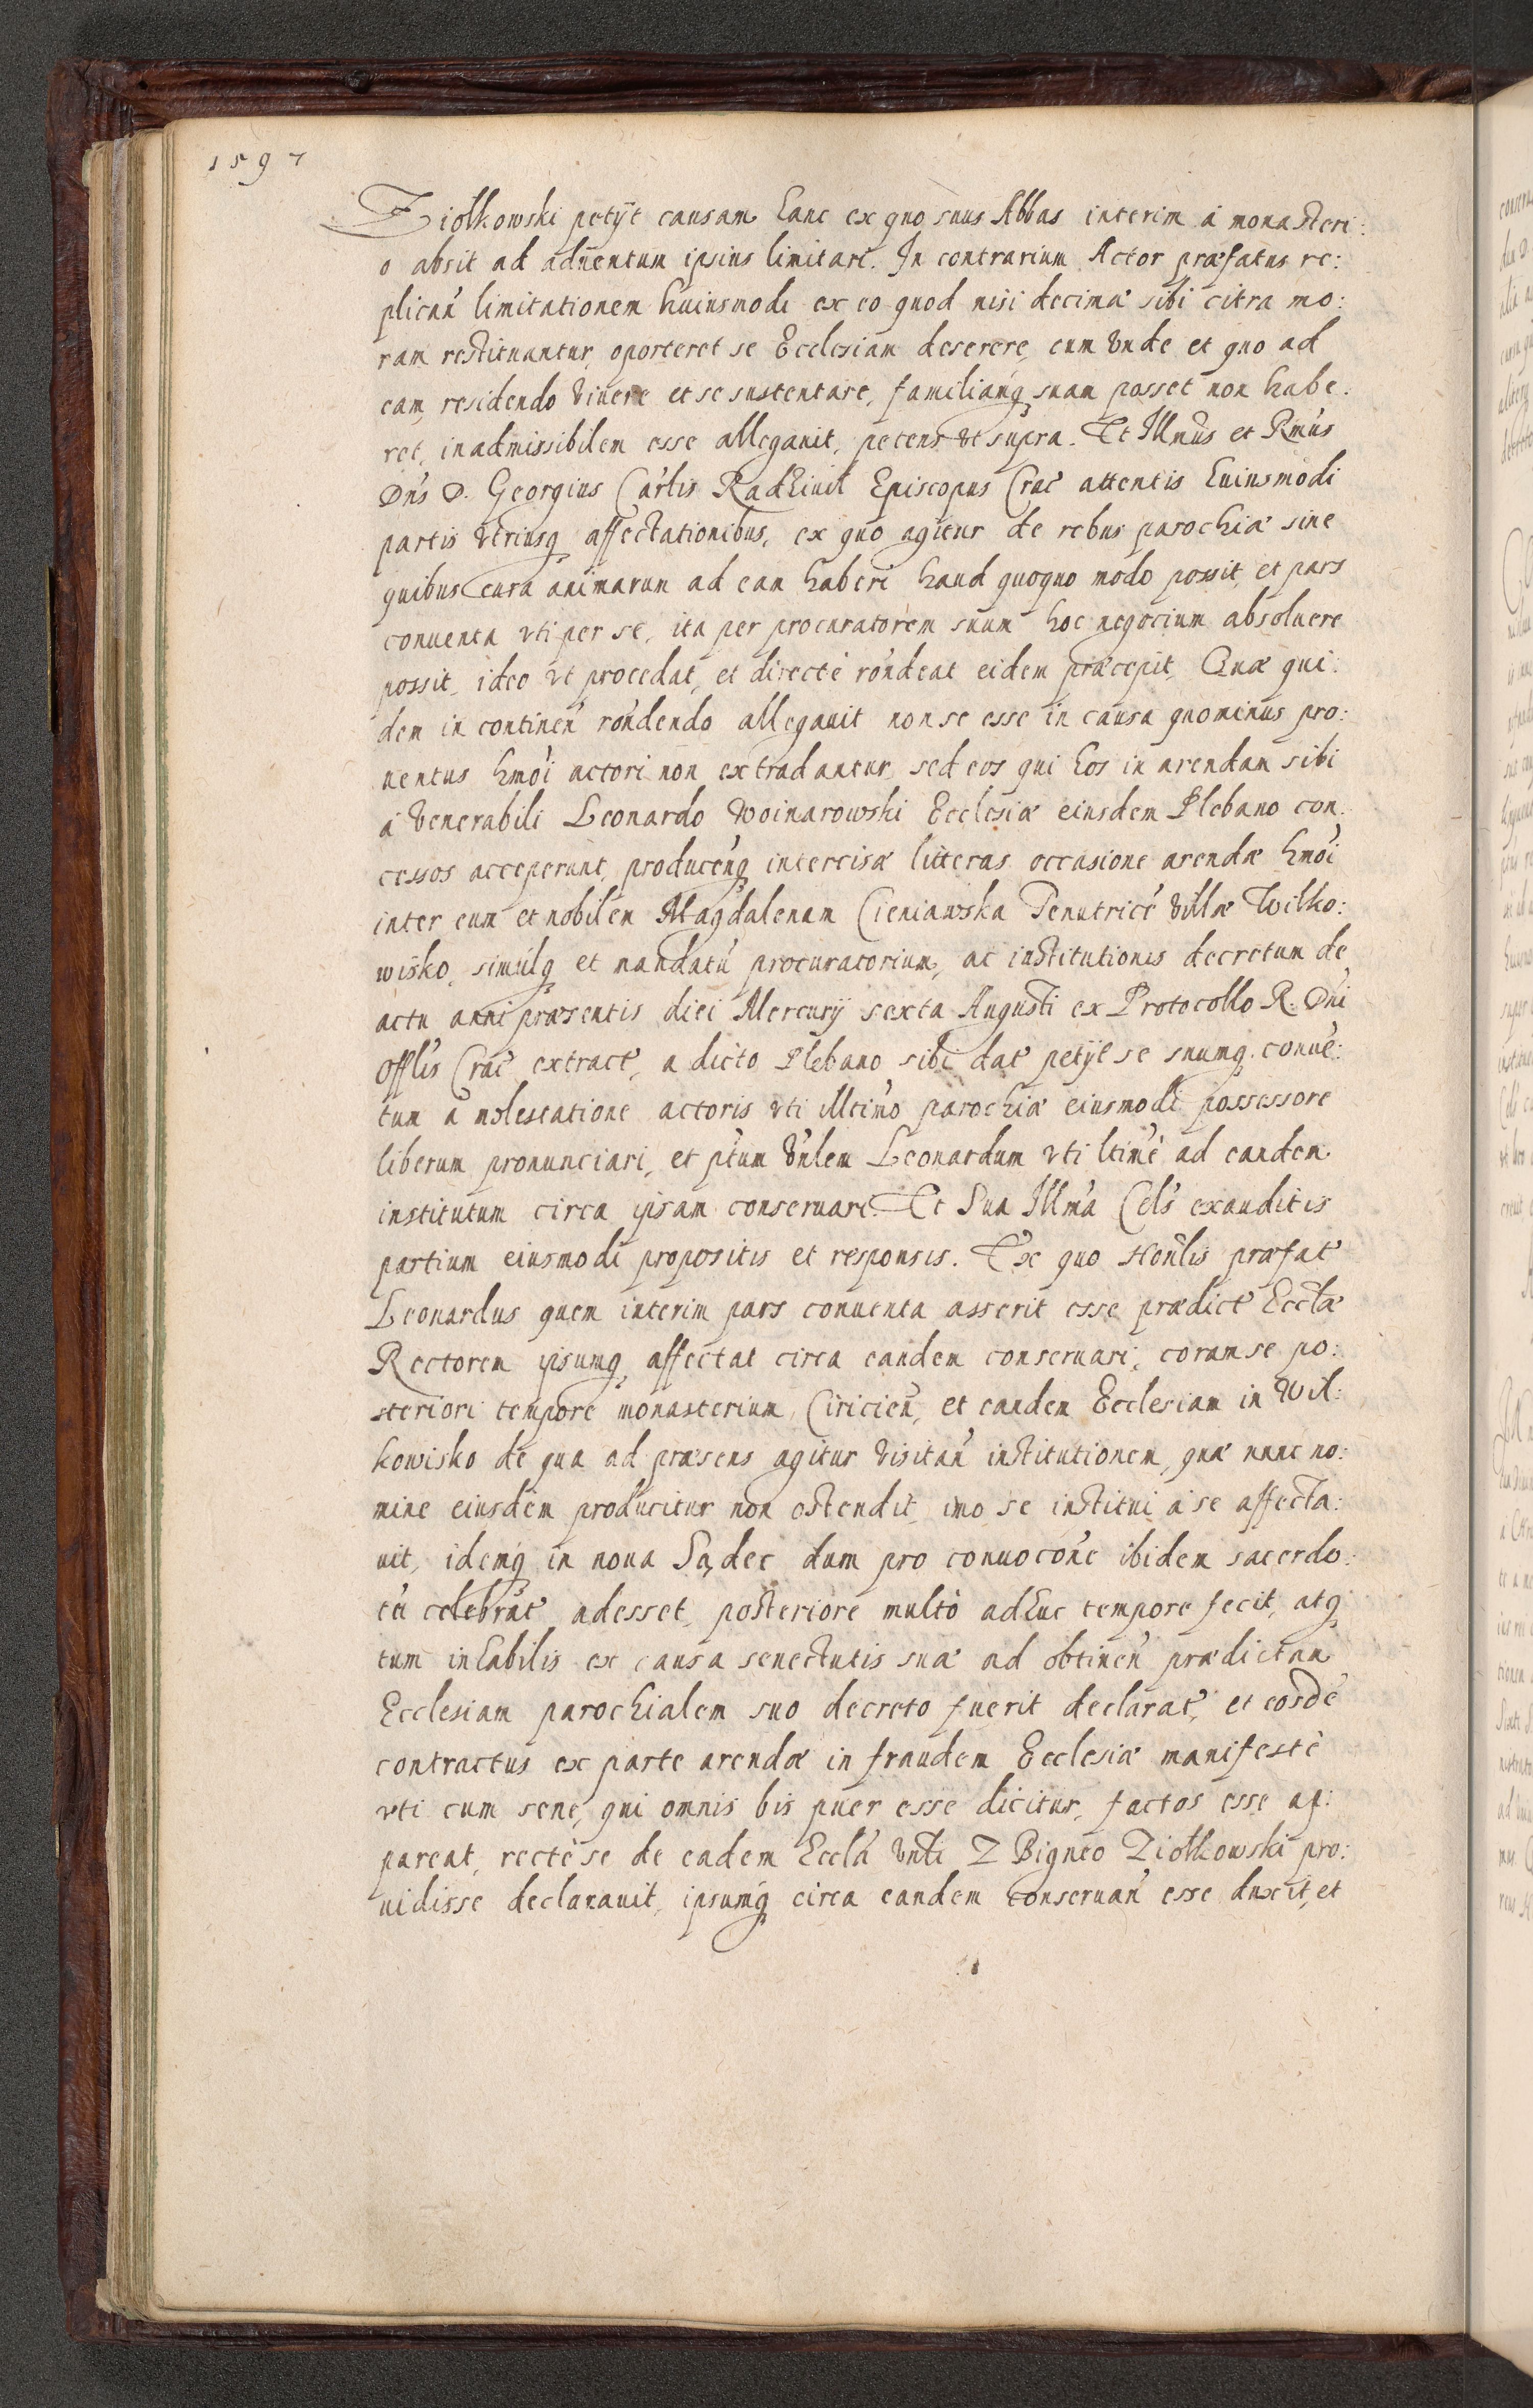 1597
Ziołkowski petÿt causam hanc ex quo suus Abbas interim á monasteri:
o absit ad aduentum ipsius limitari. In contrarium Actor præfatus re:
plican̄ limitationem huiusmodi ex eo quod nisi decimæ sibi citra mo:
ram restituantur, oporteret se Ecclesiam deserere, cum vnde et quo ad
eam residendo viuere et se sustentare, familiamq́ suam posset non habe:
ret, inadmissibilem esse allegauit, petens vt supra. Et Illmūs et Rmūs
Dn̄s D. Georgius Car̄lis Radziuił Episcopus Crac̄ attentis huiusmodi
partis vtriusq affectationibus, ex quo agitur de rebus parochiæ sine
quibus cura animarum ad eam haberi haud quoquo modo possit, et pars
conuenta vti per se, ita per procuratorem suum hoc negocium absoluere
possit, ideo vt procedat, et directè ron̄deat eidem præcepit, Quæ qui:
dem in continen̄ ron̄dendo allegauit non se esse in causa quominus pro:
uentus hmōi actori non extradantur, sed eos qui hos in arendam sibi
á Venerabili Leonardo Woinarowski Ecclesiæ eiusdem Plebano con:
cessos acceperunt, producen̄q intercisæ litteras occasione arendæ hmōi
inter eum et nobilem Magdalenam Cieniawska Tenutricē villæ Wilko:
wisko, simúlq et mandatū procuratorium, ac institutionis decretum de
actu anni præsentis diei Mercurÿ sexta Augusti ex Protocollo R. Dn̄i
Offlīs Crac̄ extract̄, a dicto Plebano sibi dat̄ petÿt se suumq. conuē:
tum á molestatione actoris vti illtimō parochiæ eiusmodi possessore
liberum pronunciari, et ptūm Vn̄lem Leonardum vti ltimē ad eandem
institutum circa ipsam conseruari. Et Sua Illmā Cels̄ exauditis
partium eiusmodi propositis et responsis. Ex quo Hon̄lis præfat̄
Leonardus quem interim pars conuenta asserit esse prædict̄ Ecclǣ
Rectorem ipsumq affectat circa eandem conseruari, coram se po:
steriori tempore monasterium Ciricien̄, et eandem Ecclesiam in Wil:
kowisko de qua ad præsens agitur visitan̄ institutionem, quæ nunc no:
mine eiusdem producitur non ostendit, imo se institui á se affecta:
uit, idemq́ in noua Sądec dum pro conuocōne ibidem sacerdo:
tū celebrat̄ adesset, posteriore multò adhuc tempore fecit, atq
tum inhabilis ex causa senectutis suæ ad obtinen̄ prædictam
Ecclesiam parochialem suo decreto fuerit declarat̄, et eosdē
contractus ex parte arendæ in fraudem Ecclesiæ manifestè
vti cum sene, qui omnis bis puer esse dicitur, factos esse ap:
pareat, rectè se de eadem Ecclā Vn̄li Z Bigneo Ziołkowski pro:
uidisse declarauit, ipsumq́ circa eandem conseruan̄ esse duxit, et